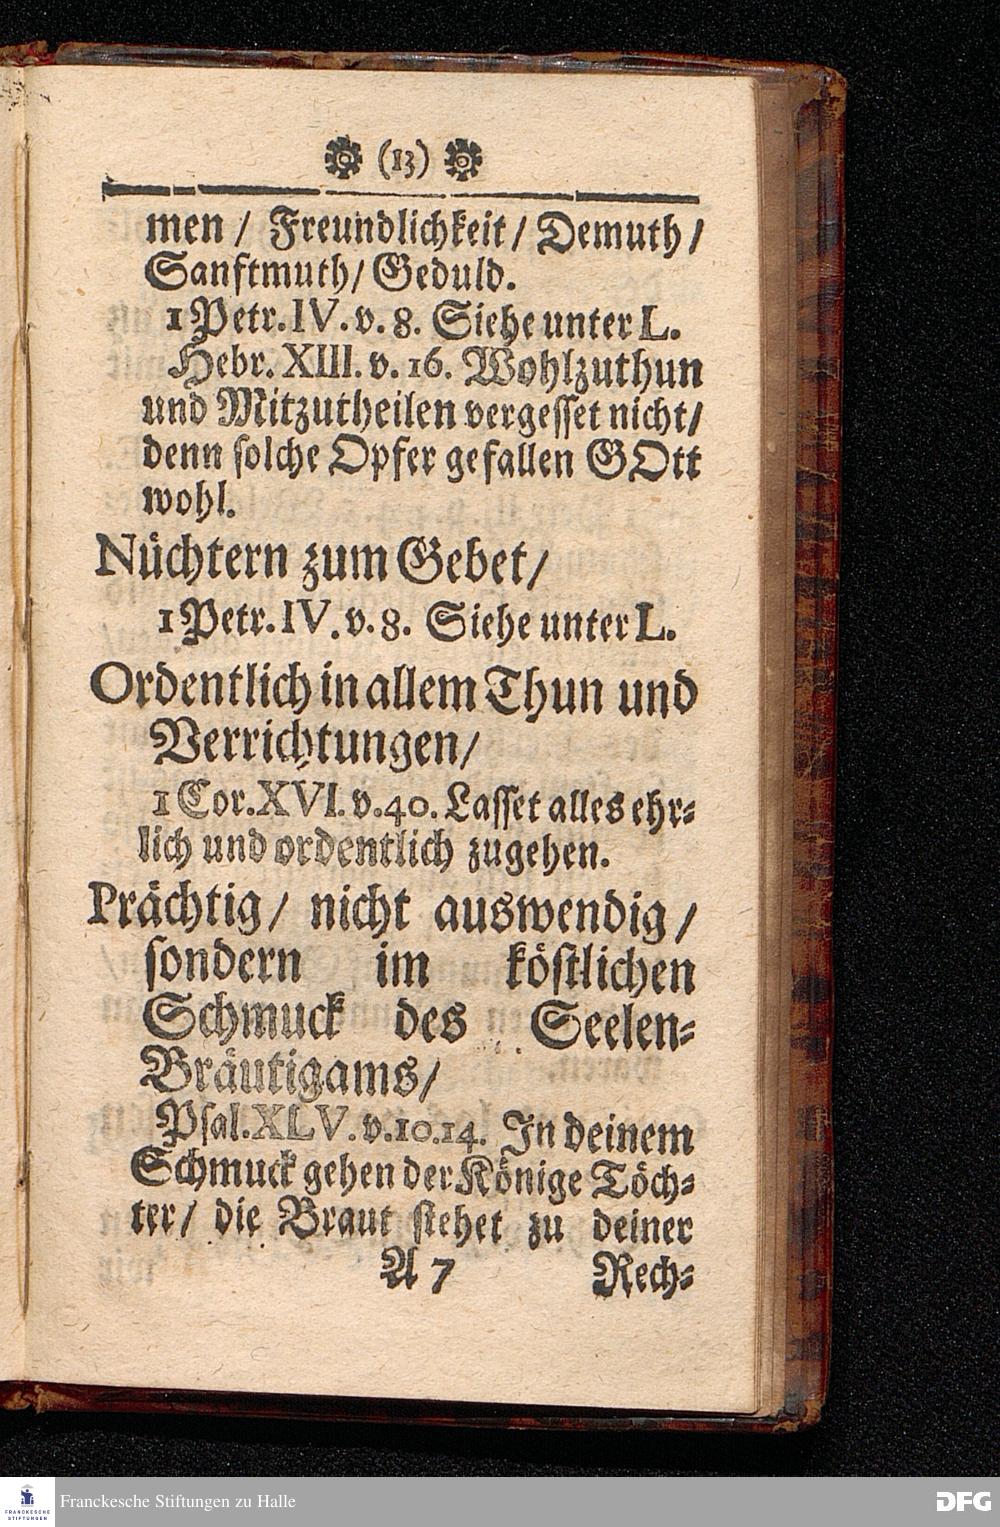 (13)
men / Freundlichkeit / Demuth /
Sanftmuth / Geduld.
1 Petr. IV. v. 8. Siehe unter L.
Hebr. XIII. v. 16. Wohlzuthun
und Mitzutheilen vergesset nicht /
denn solche Opfer gefallen GOtt
wohl.
Nüchtern zum Gebet /
1 Petr. IV. v. 8. Siehe unter L.
Ordentlich in allem Thun und
Verrichtungen /
1 Cor. XVI. v. 40. Lasset alles ehr-
lich und ordentlich zugehen.
Prächtig / nicht auswendig /
sondern im köstlichen
Schmuck des Seelen-
Bräutigams /
Psal. XLV. v. 10. 14. In deinem
Schmuck gehen der Könige Töch-
ter / die Braut stehet zu deiner
A 7 Rech-
FRANCKESCHE STIFTUNGEN
Franckesche Stiftungen zu Halle
DFG